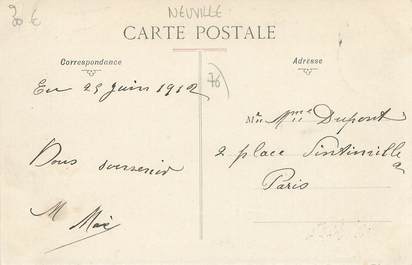 30 €
NEUVILLE
CARTE POSTALE
Correspondance
Adresse
Eu 25 Juin 1912
76
M Mme Dupont
2 place
Paris
Bons souvenir
M